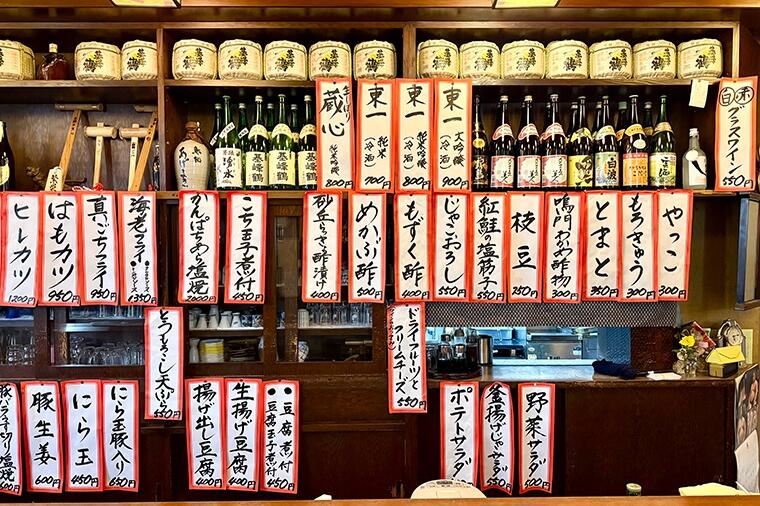 蔵心
純米吟醸
800
東一
純米
(冷酒)
700
東一
純米吟醸
(冷酒)
800
東一
大吟醸
(冷酒)
900
白 赤
グラスワイン
550円
ヒレカツ
1200円
はもカツ
950円
真ごちフライ
950円
海老フライ
1350円
かんぱちあら塩焼
2000円
こち玉子煮付
450円
砂丘らっきょ酢漬け
400円
めかぶ酢
500円
もずく酢
400円
じゃこおろし
550円
紅鮭の塩筋子
550円
枝豆
250円
鳴門わかめ酢物
300円
とまと
350円
もろきゅう
300円
やっこ
300円
とうもろこし天ぷら
550円
ドライフルーツと
クリームチーズ
550円
豚バラス切り塩焼
豚生姜
600円
にら玉
450円
にら玉豚入り
650円
揚げ出し豆腐
400円
生揚げ豆腐
400円
豆腐煮付
豆腐玉子煮付
450円
ポテトサラダ
釜揚げじゃこサラダ
550円
野菜サラダ
500円